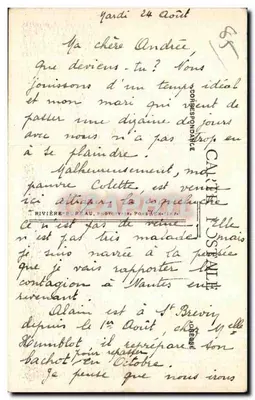 Mardi 24 Août
85
Ma chère Andrée,
que deviens-tu ? Nous
jouissons d'un temps idéal
et mon mari qui vient de
passer une dizaine de jours
avec nous n'a pas trop eu
à se plaindre.
Malheureusement, ma
pauvre Colette est venue
ici attraper la coqueluche
ce n'est pas de veine. Elle
n'est pas très malade mais
je suis navrée à la pensée
que je vais rapporter la
contagion à Nantes en
revenant.
Alain est à St Brevin
depuis le 1er Août, chez Melle
Humblot, il reprépare son
bachot pour repasser en Octobre.
Je pense que nous irons
CORRESPONDANCE
CARTE POSTALE
ADRESSE